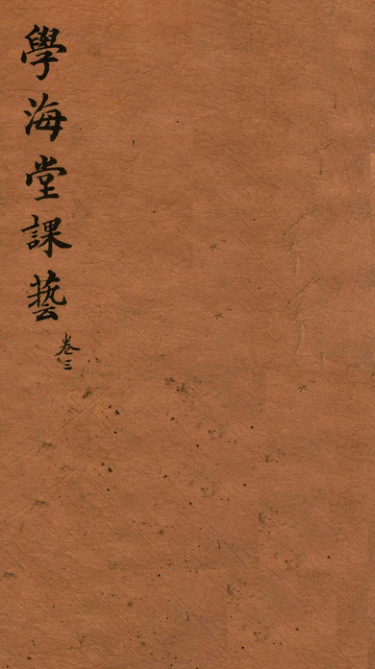 學海堂課藝
卷三